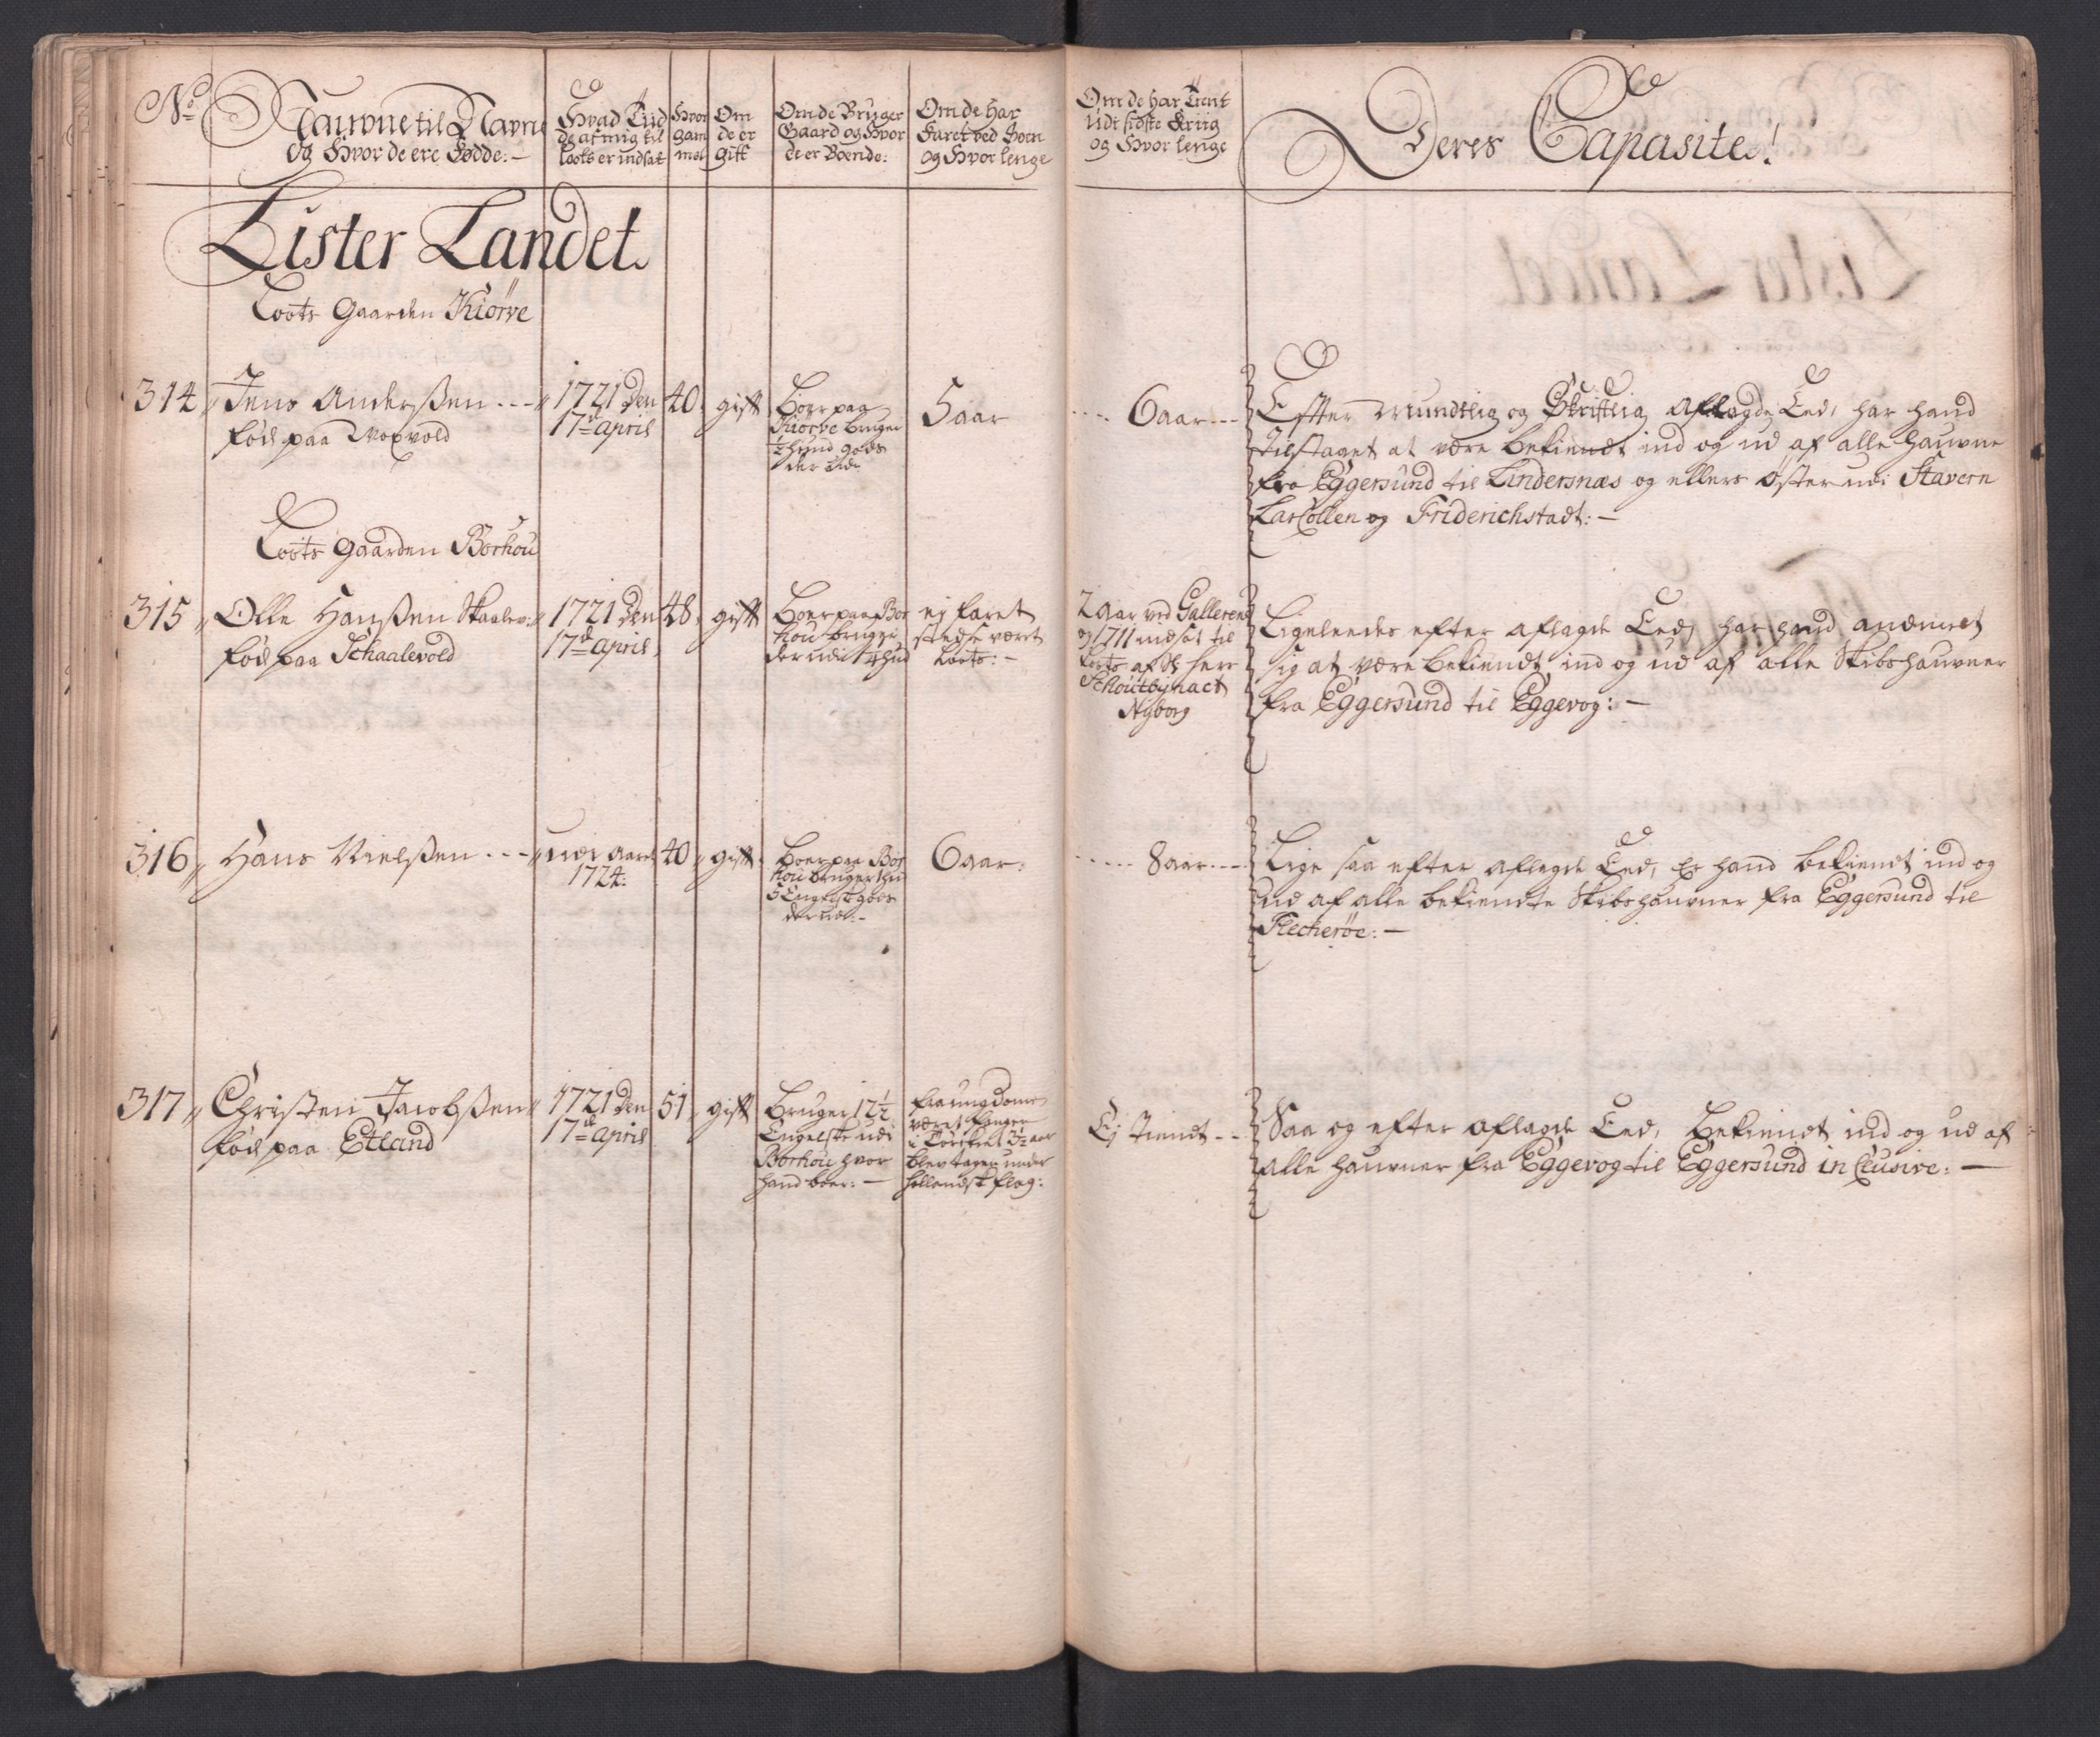 No
Naufvne til Navn
og Hvor de ere Fødde: —
Hvad Tiid
de af mig til
Loots er indsat
Hvor
gam
mel
Om
de er
Gift
Om de Bruger
Gaard og Hvor
de er Boende:
Om de har
Faret ved Søen
og Hvor lenge
Om de har Tient
Udi sidste Kriig
og Hvor lenge
Deres Capasite!
Lister Landet.
Loots Gaarden Kiørve
314
Jens Anderßen
fød paa
1721 Den
17de april
40
gift
Boer paa
Kiørve bruger
½ hund gods
der udi
5 aar
6 aar
Efter Mundtlig og Skriftlig aflagde Eed, har hand
tilstaaet at være bekiendt ind og ud af alle Haufvne
fra Eggersund til Lindersnæs og ellers øster udi Stavern
Larcollen og Friderichstadt: —
Loots Gaarden Borhou
315
Olle Hanßen Skaalev:
fød paa Schaalevold
1721 Den
17de april
48
gift
Boer paa Bor
hou bruger
der udi 1 hud
ej faret
stedse været
Loots: —
2 aar ved Galleierne
og 1711 indsat til
Loots af Hr herr
Schoutbynact
Nyborg
Ligeleedes efter aflagde Eed, har hand
sig at være bekiendt ind og ud af alle Skibshaufvner
fra Eggersund til Eggevog: —
316
Hans Nielßen
udi aaret
1724:
40
gift
Boer paa Bor
hou bruger 1 hu
5 Engelst gods
der udi: —
6 aar:
8 aar
Lige saa efter aflagde Eed, Er hand bekiendt ind og
ud af alle bekiendte Skibshaufvner fra Eggersund til
Flecherøe: —
317
Christen Jacobßen
fød paa Etland
1721 Den
17de april
51
gift
Bruger 12½
Engelske udi
Borhou hvor
hand boer: —
fra ungdom
været fanger
i Tørchent 3½ aar
blev tagen under
hollandsk flag:
Ej tient
Saa og efter aflagde Eed, bekiendt ind og ud af
alle haufvner fra Eggevog til Eggersund inclusive: —